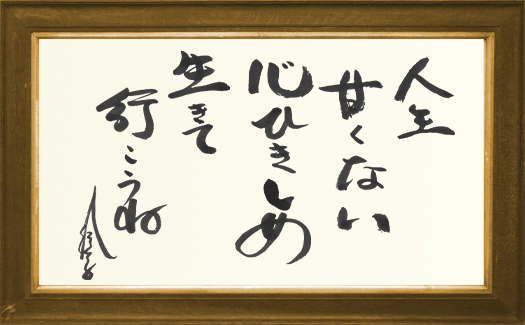 人生
甘くない
心ひきしめ
生きて
行こうね